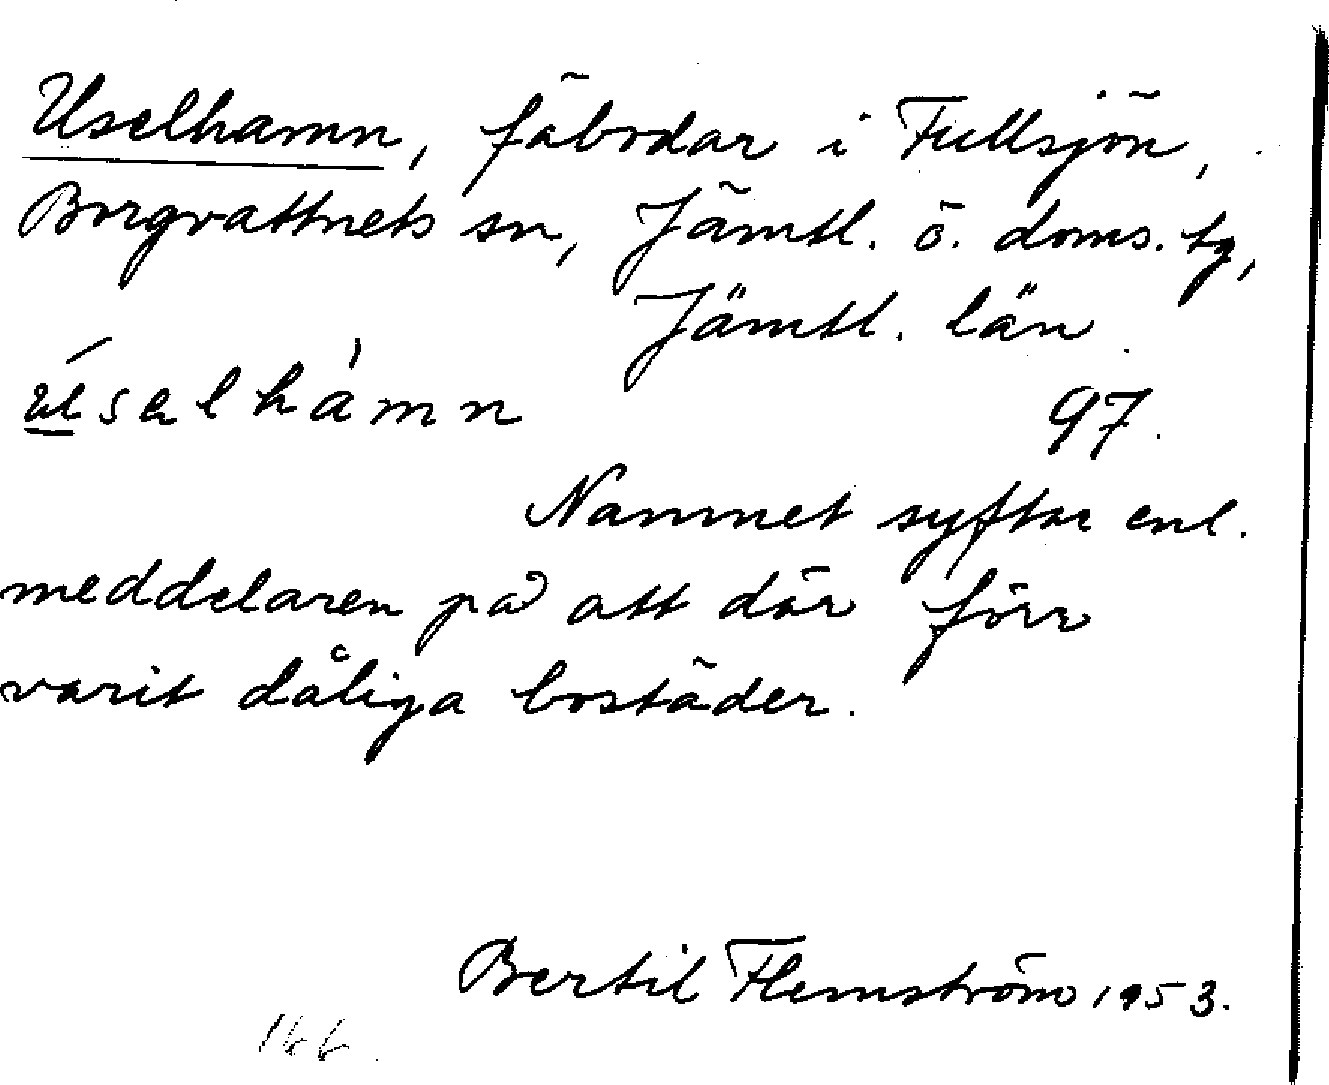 Uselhamn, fäbodar i Fullsjön,
Borgvattnets sn, Jämtl. ö. doms. tg,
Jämtl. län.
97.
Namnet syftar enl.
meddelaren på att där förr
varit dåliga bostäder.
Bertil Flemström 1953.
166.